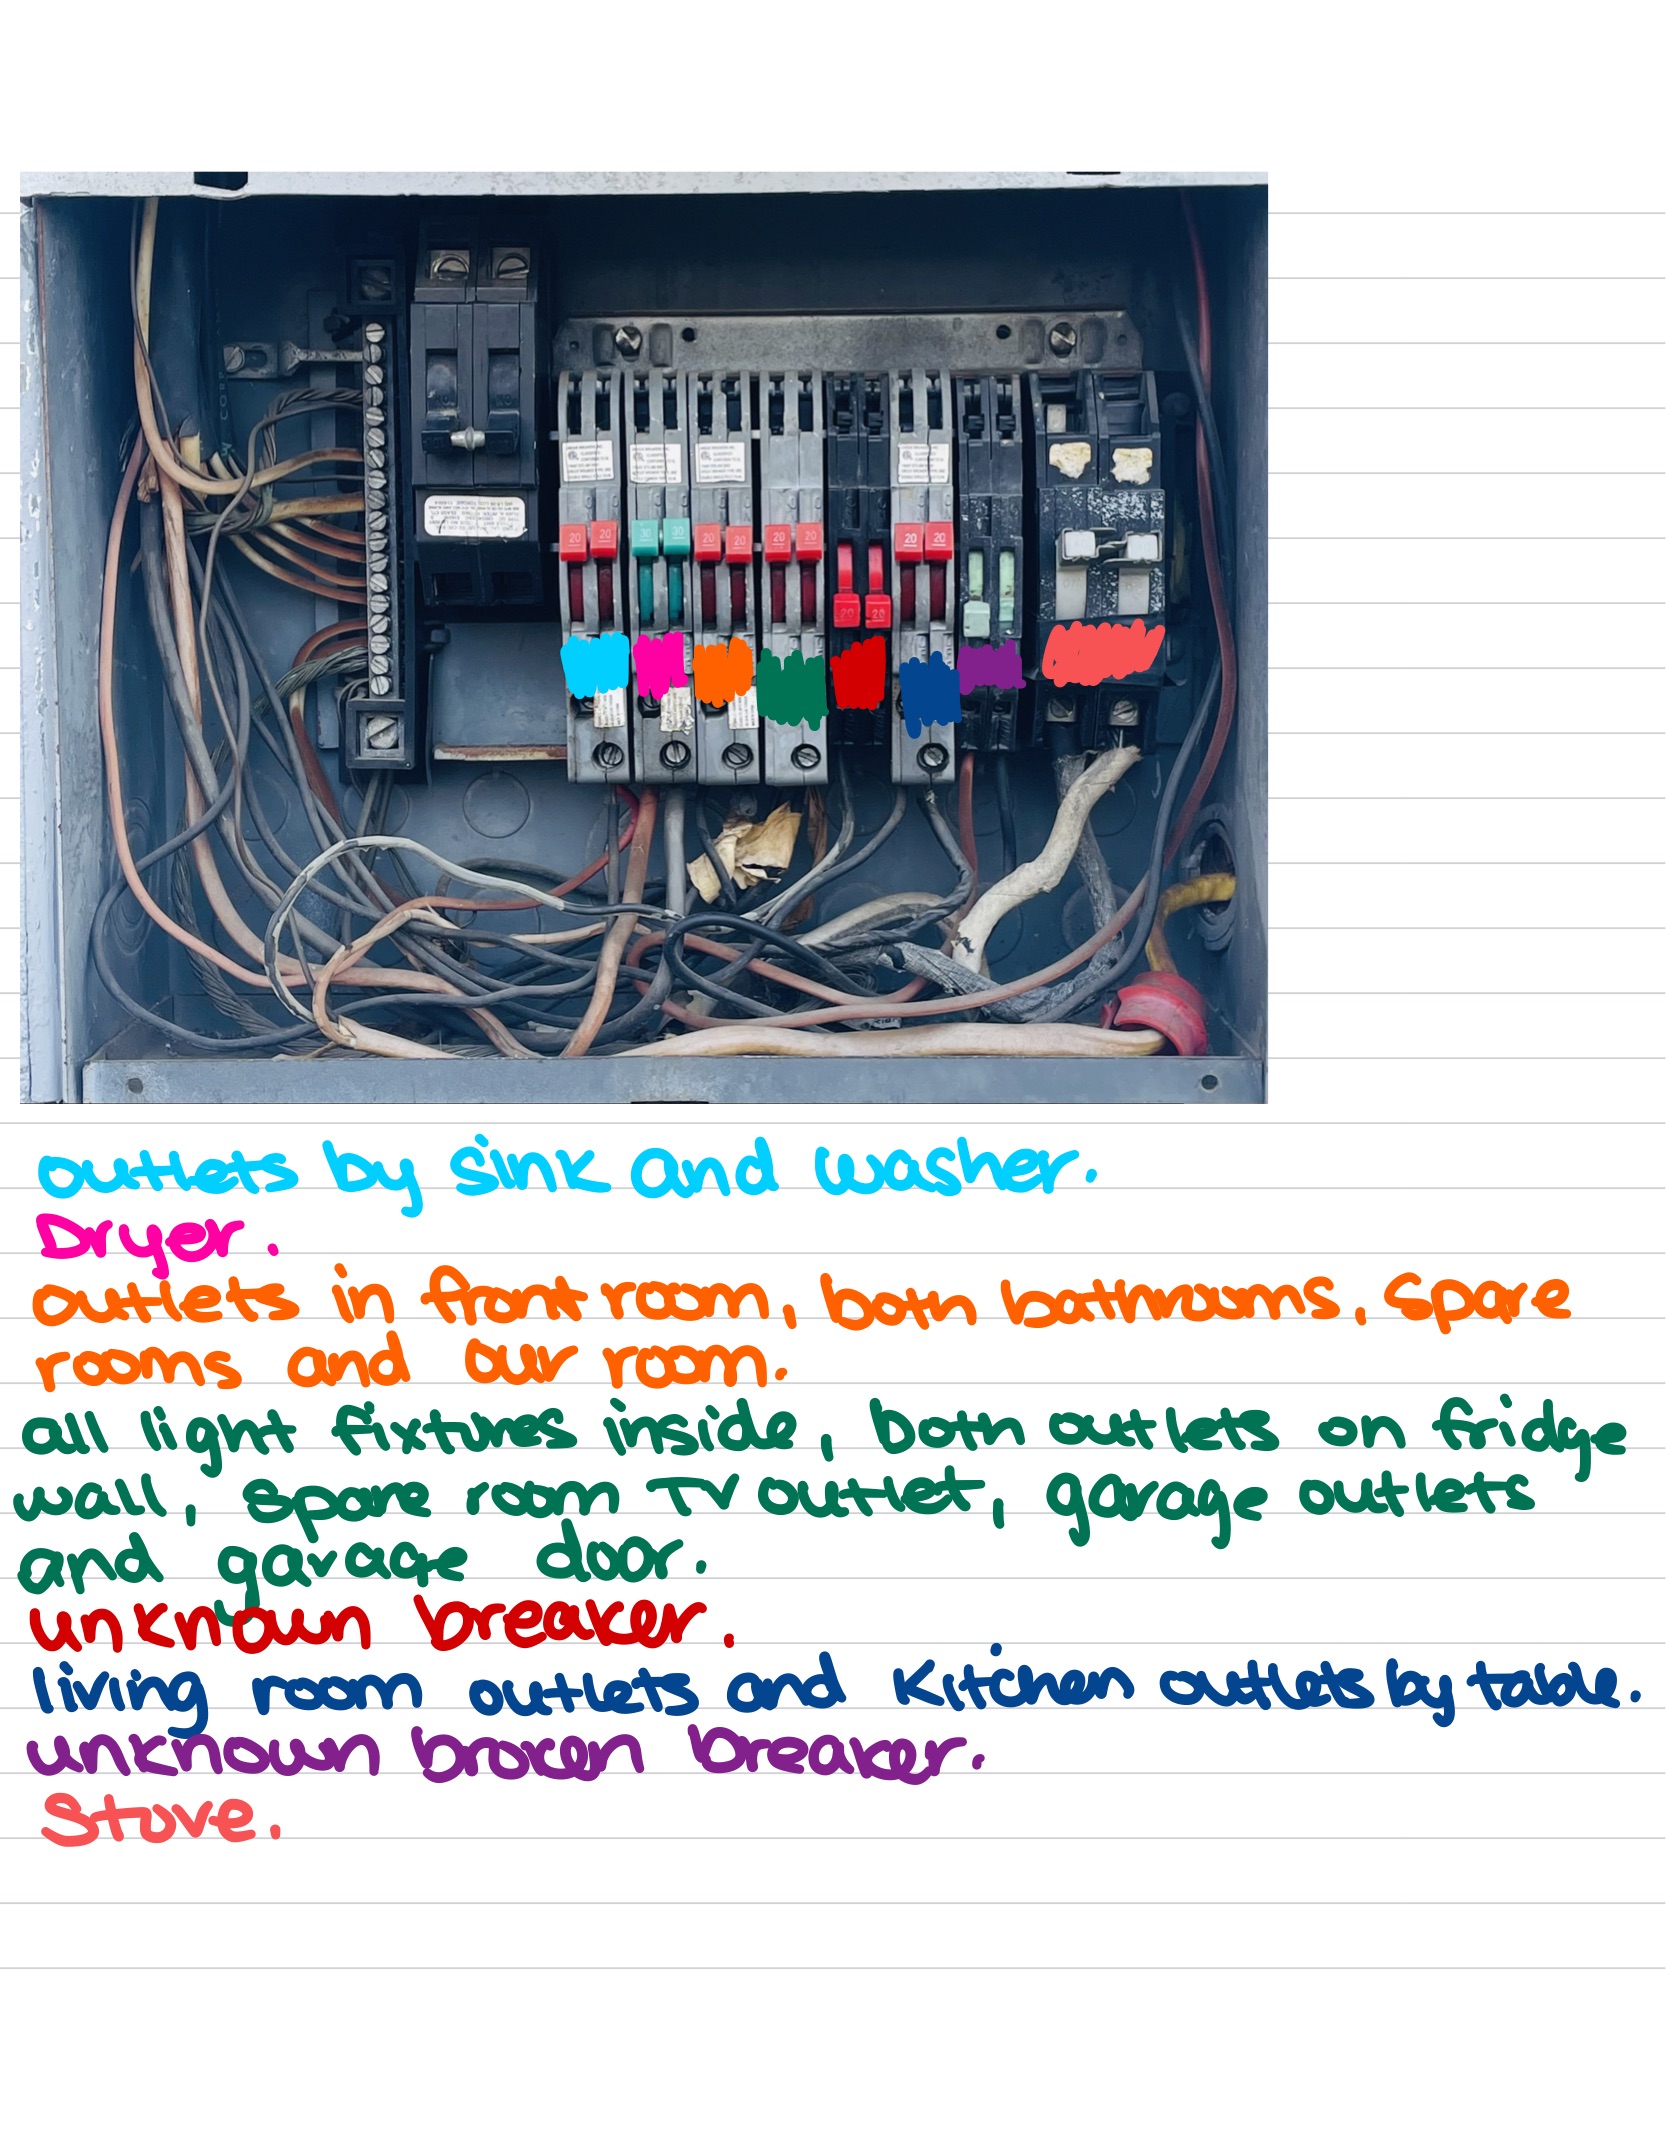 20 20 30 30 20 20 20 20 20 20 20 20
outlets by sink and washer.
Dryer.
outlets in front room, both bathrooms, spare
rooms and our room.
all light fixtures inside, both outlets on fridge
wall, spare room TV outlet, garage outlets
and garage door.
unknown breaker.
living room outlets and kitchen outlets by table.
unknown broken breaker.
Stove.